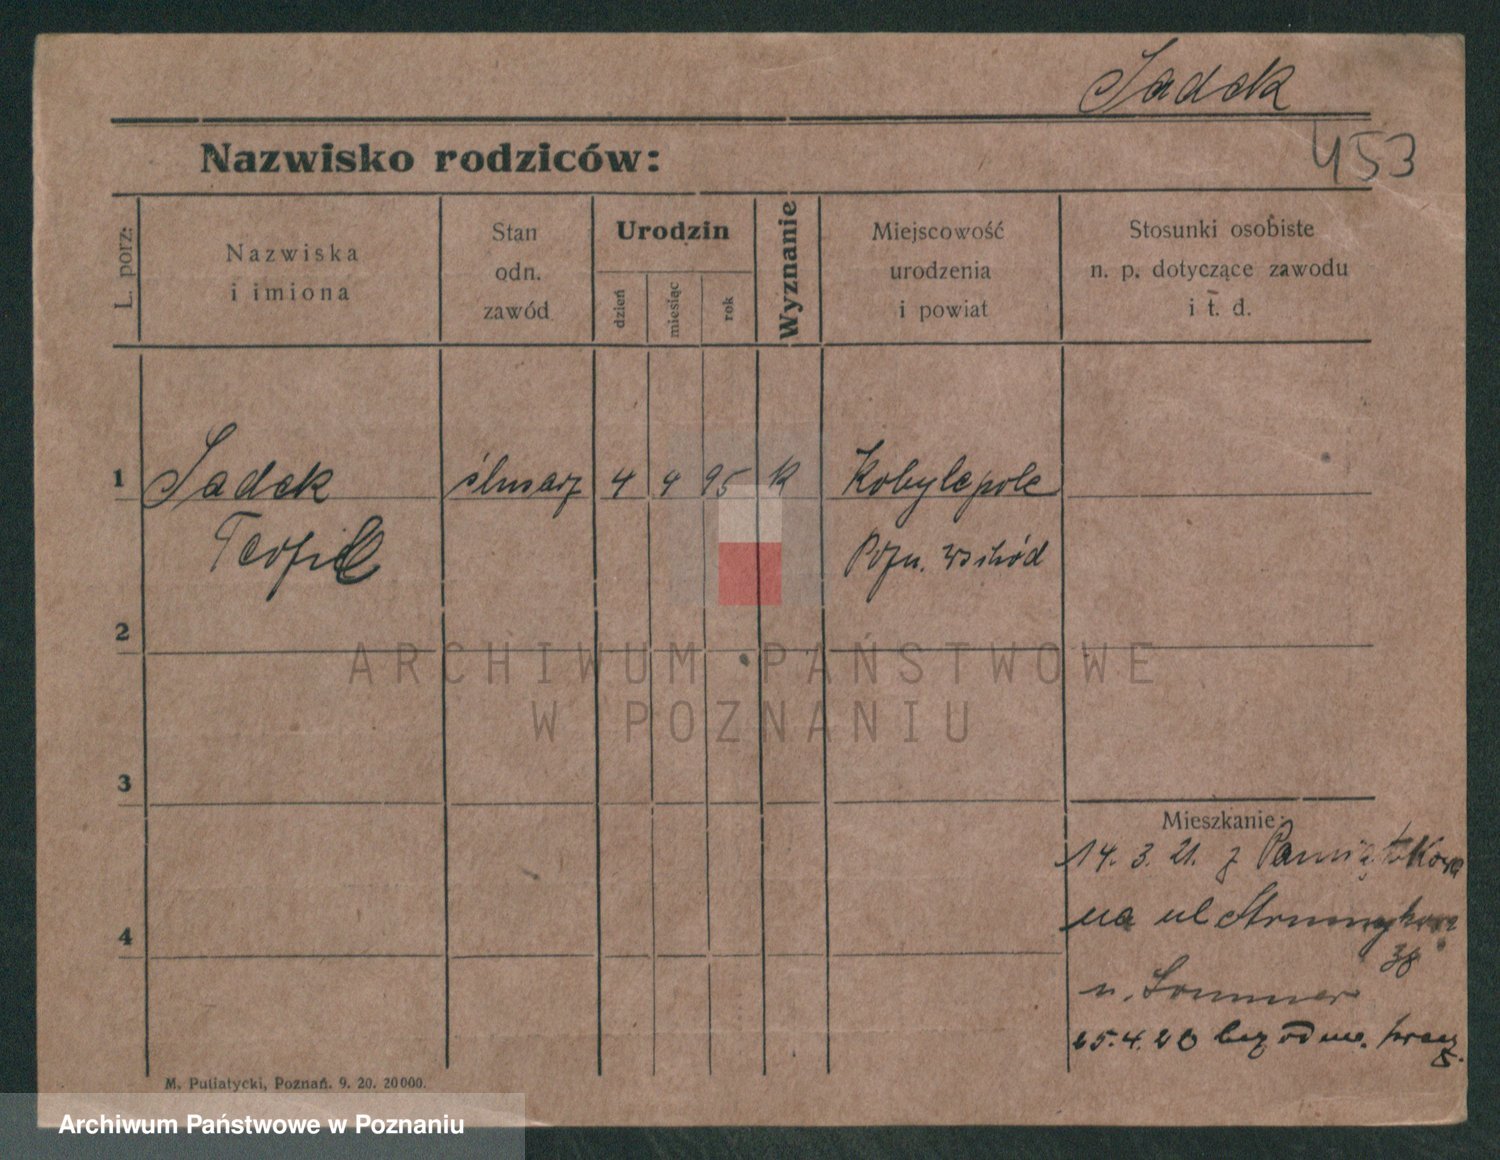 Sadek
453
Nazwisko rodziców:
L. porz:
Nazwiska
i imiona
Stan
odn.
zawód
Urodzin
dzień
miesiąc
rok
Wyznanie
Miejscowość
urodzenia
i powiat
Stosunki osobiste
n. p. dotyczące zawodu
i t. d.
1 Sadek ślusarz 4 4 95 k Kobylepole
Teofil Pozn. wschód
2
ARCHIWUM PAŃSTWOWE
W POZNANIU
3
Mieszkanie:
14. 3. 21. z Pamiątkowa
na ul Strumykowa
38
u. Sommer
4
25.4.23 bez odme.
M. Putiatycki, Poznań. 9. 20. 20 000.
Archiwum Państwowe w Poznaniu